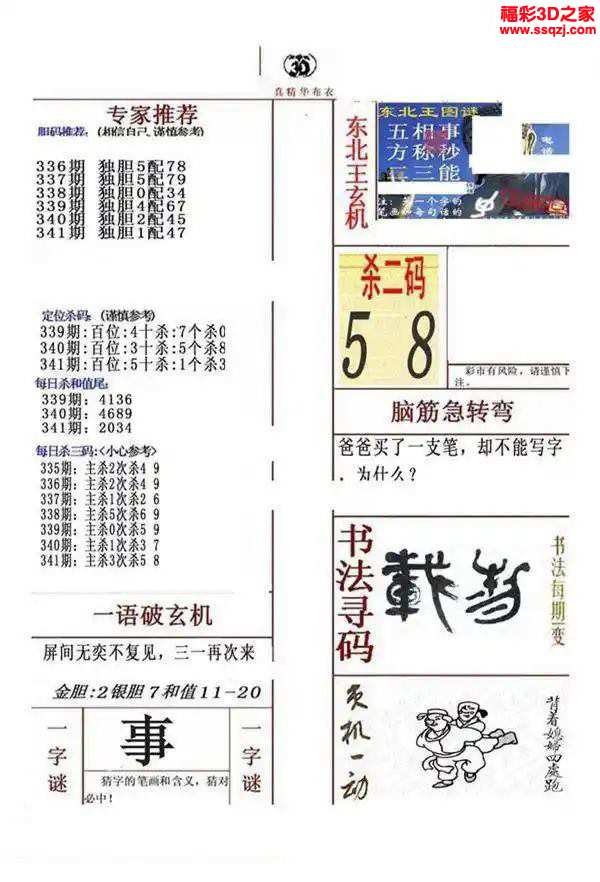 福彩3D之家
www.ssqzj.com
3D
真精华布衣
专家推荐
胆码推荐：(相信自己, 谨慎参考)
336期 独胆5配78
337期 独胆5配79
338期 独胆0配34
339期 独胆4配67
340期 独胆2配45
341期 独胆1配47
定位杀码：(谨慎参考)
339期:百位:4十杀:7个杀0
340期:百位:3十杀:5个杀8
341期:百位:5十杀:1个杀3
每日杀和值尾:
339期: 4136
340期: 4689
341期: 2034
每日杀三码:<小心参考>
335期: 主杀2次杀4 9
336期: 主杀2次杀4 9
337期: 主杀1次杀2 6
338期: 主杀5次杀6 9
339期: 主杀0次杀5 9
340期: 主杀1次杀3 7
341期: 主杀3次杀5 8
一语破玄机
屏间无奕不复见，三一再次来
金胆:2银胆7和值11-20
一字谜
事
猜字的笔画和含义，猜对
必中!
一字谜
东北王玄机
东北王图谜
五相事
方称秒
三能
电话
注：第一个字的
笔画和每句话的
杀二码
5 8
彩市有风险，请谨慎下
注。
脑筋急转弯
爸爸买了一支笔，却不能写字
，为什么？
书法寻码
书法每期一变
玄机一动
背着媳妇四处跑